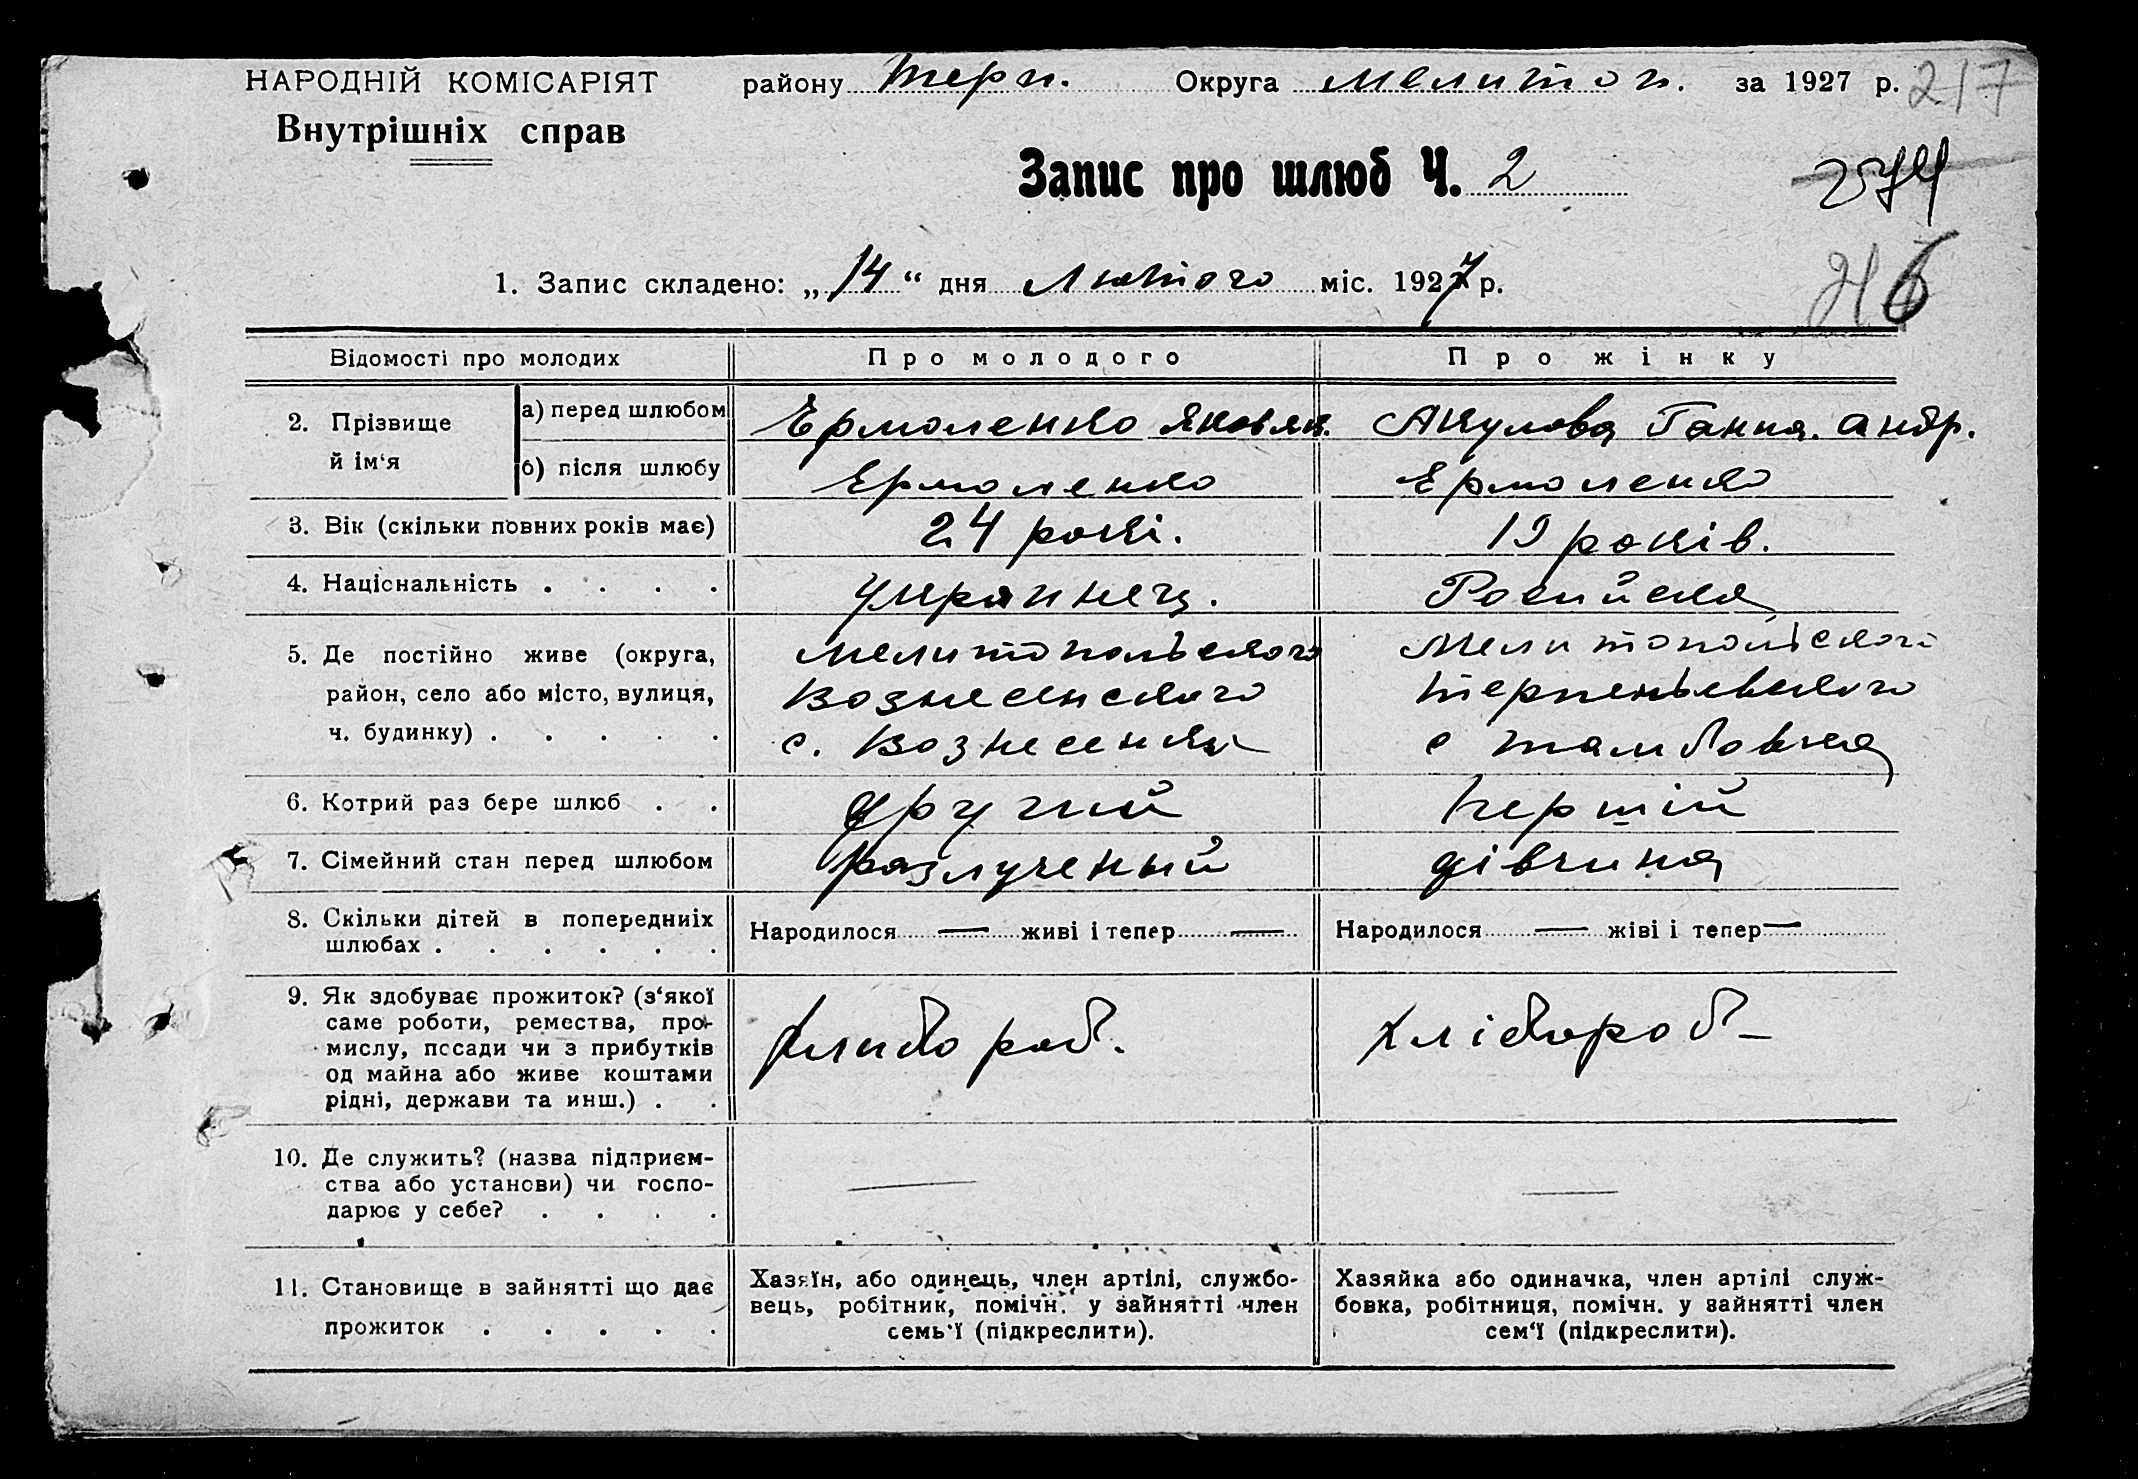 НАРОДНІЙ КОМІСАРІЯТ
Внутрішніх справ
району Терп. Округа Мелитоп. за 1927 р. 217
Запис про шлюб Ч. 2
274
1. Запис складено: „14“ дня Лютого міс. 1927 р.
Відомості про молодих Про молодого Про жінку
2. Прізвище й ім‘я
а) перед шлюбом Ермоленко Яков Акулова Ганна. Андр.
б) після шлюбу Ермоленко Ермоленко
3. Вік (скільки повних років має) 24 рокі. 19 років.
4. Національність . . . . украинец. Росийска
5. Де постійно живе (округа, Мелитопольского Мелитопольского
район, село або місто, вулиця, Вознесенского Терпеньевского
ч. будинку) . . . . . с. Вознесенка с Тамбовка
6. Котрий раз бере шлюб . . другий першій
7. Сімейний стан перед шлюбом разлученый дівчина
8. Скільки дітей в попередниіх Народилося — живі і тепер — Народилося — жіві і тепер —
шлюбах . . . . . .
9. Як здобуває прожиток? (з‘якої
саме роботи, ремества, про-
мислу, посади чи з прибутків хлибороб. хлібороб –
од майна або живе коштами
рідні, держави та инш.) . .
10. Де служить? (назва підприєм-
ства або установи) чи госпо- — —
дарює у себе? . . . .
11. Становище в зайнятті що дає
прожиток . . . . .
Хазяїн, або одинець, член артілі, службо-
вець, робітник, помічн. у зайнятті член
семь‘ї (підкреслити).
Хазяйка або одиначка, член артілі служ-
бовка, робітниця, помічн. у зайнятті член
сем‘ї (підкреслити).